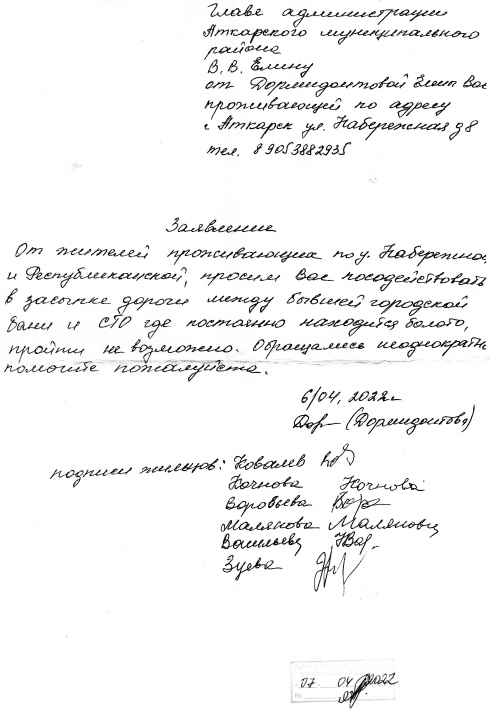 Главе администрации
Аткарского муниципального
района
В. В. Елину
от Дормидонтовой Елены Вас
проживающей по адресу
г Аткарск ул. Набережная д8
тел. 89053882935
Заявление
От жителей проживающих по у. Набережной,
и Республиканской, просим Вас посодействовать
в засыпке дороги между бывшей городской
бани и СТО где постоянно находится болото,
пройти не возможно. Обращались неоднократно
помогите пожалуйста.
6/04, 2022г
Дор (Дормидонтова)
подписи жильцов: Ковалев
Кочнова Кочнова
Воробьева Вор
Малякова Малякова
Васильева
Зуева
07 04 2022